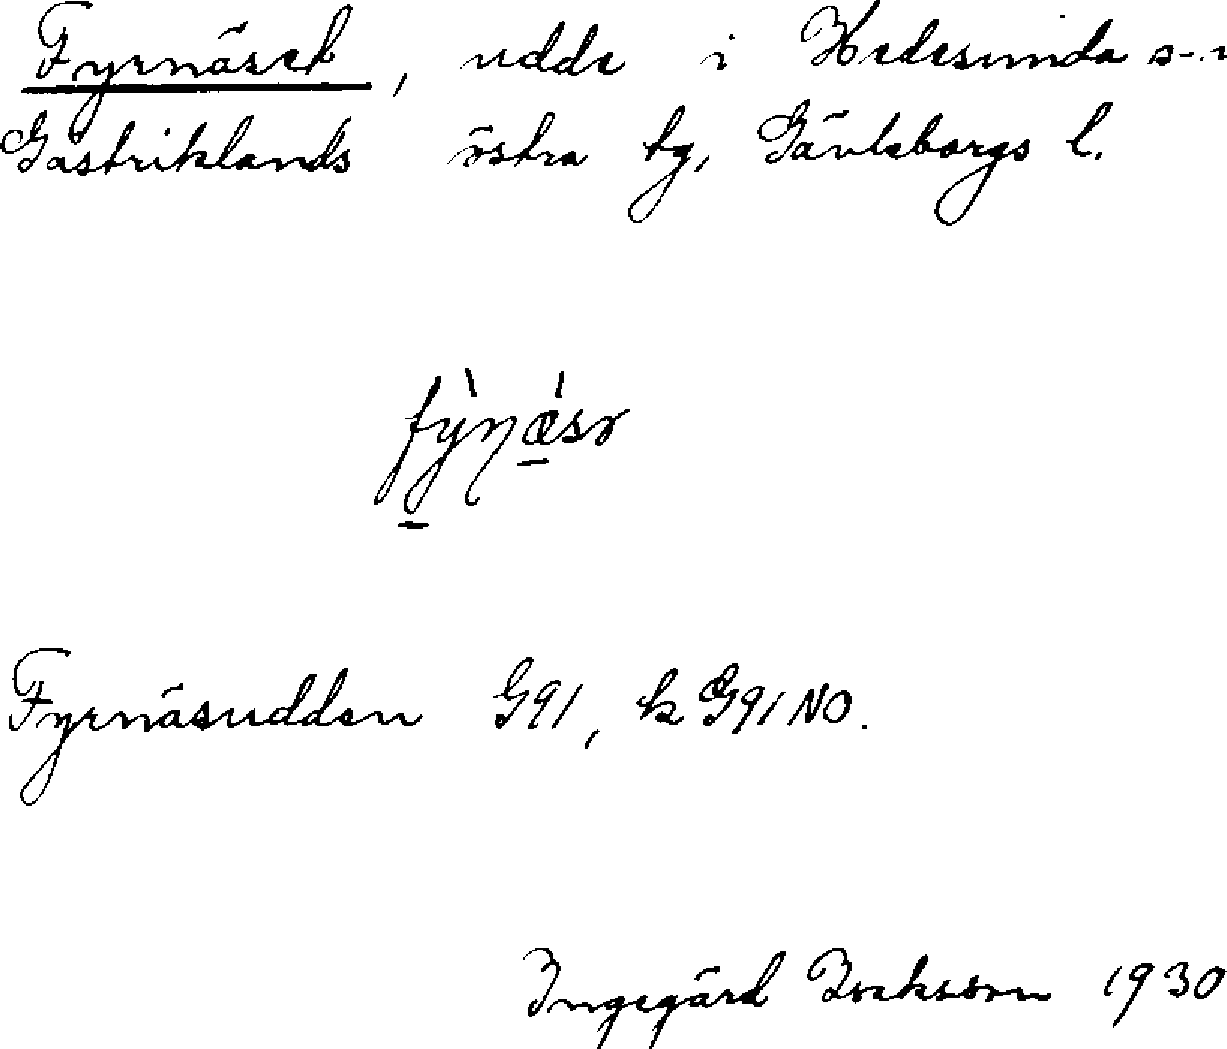 Fyrnäset, udde i Hedesunda s-n
Gästriklands östra tg, Gävleborgs l.
fỳṇǽsɤ
Fyrnäsudden G91, k G91 NO.
Ingegärd Isaksson 1930